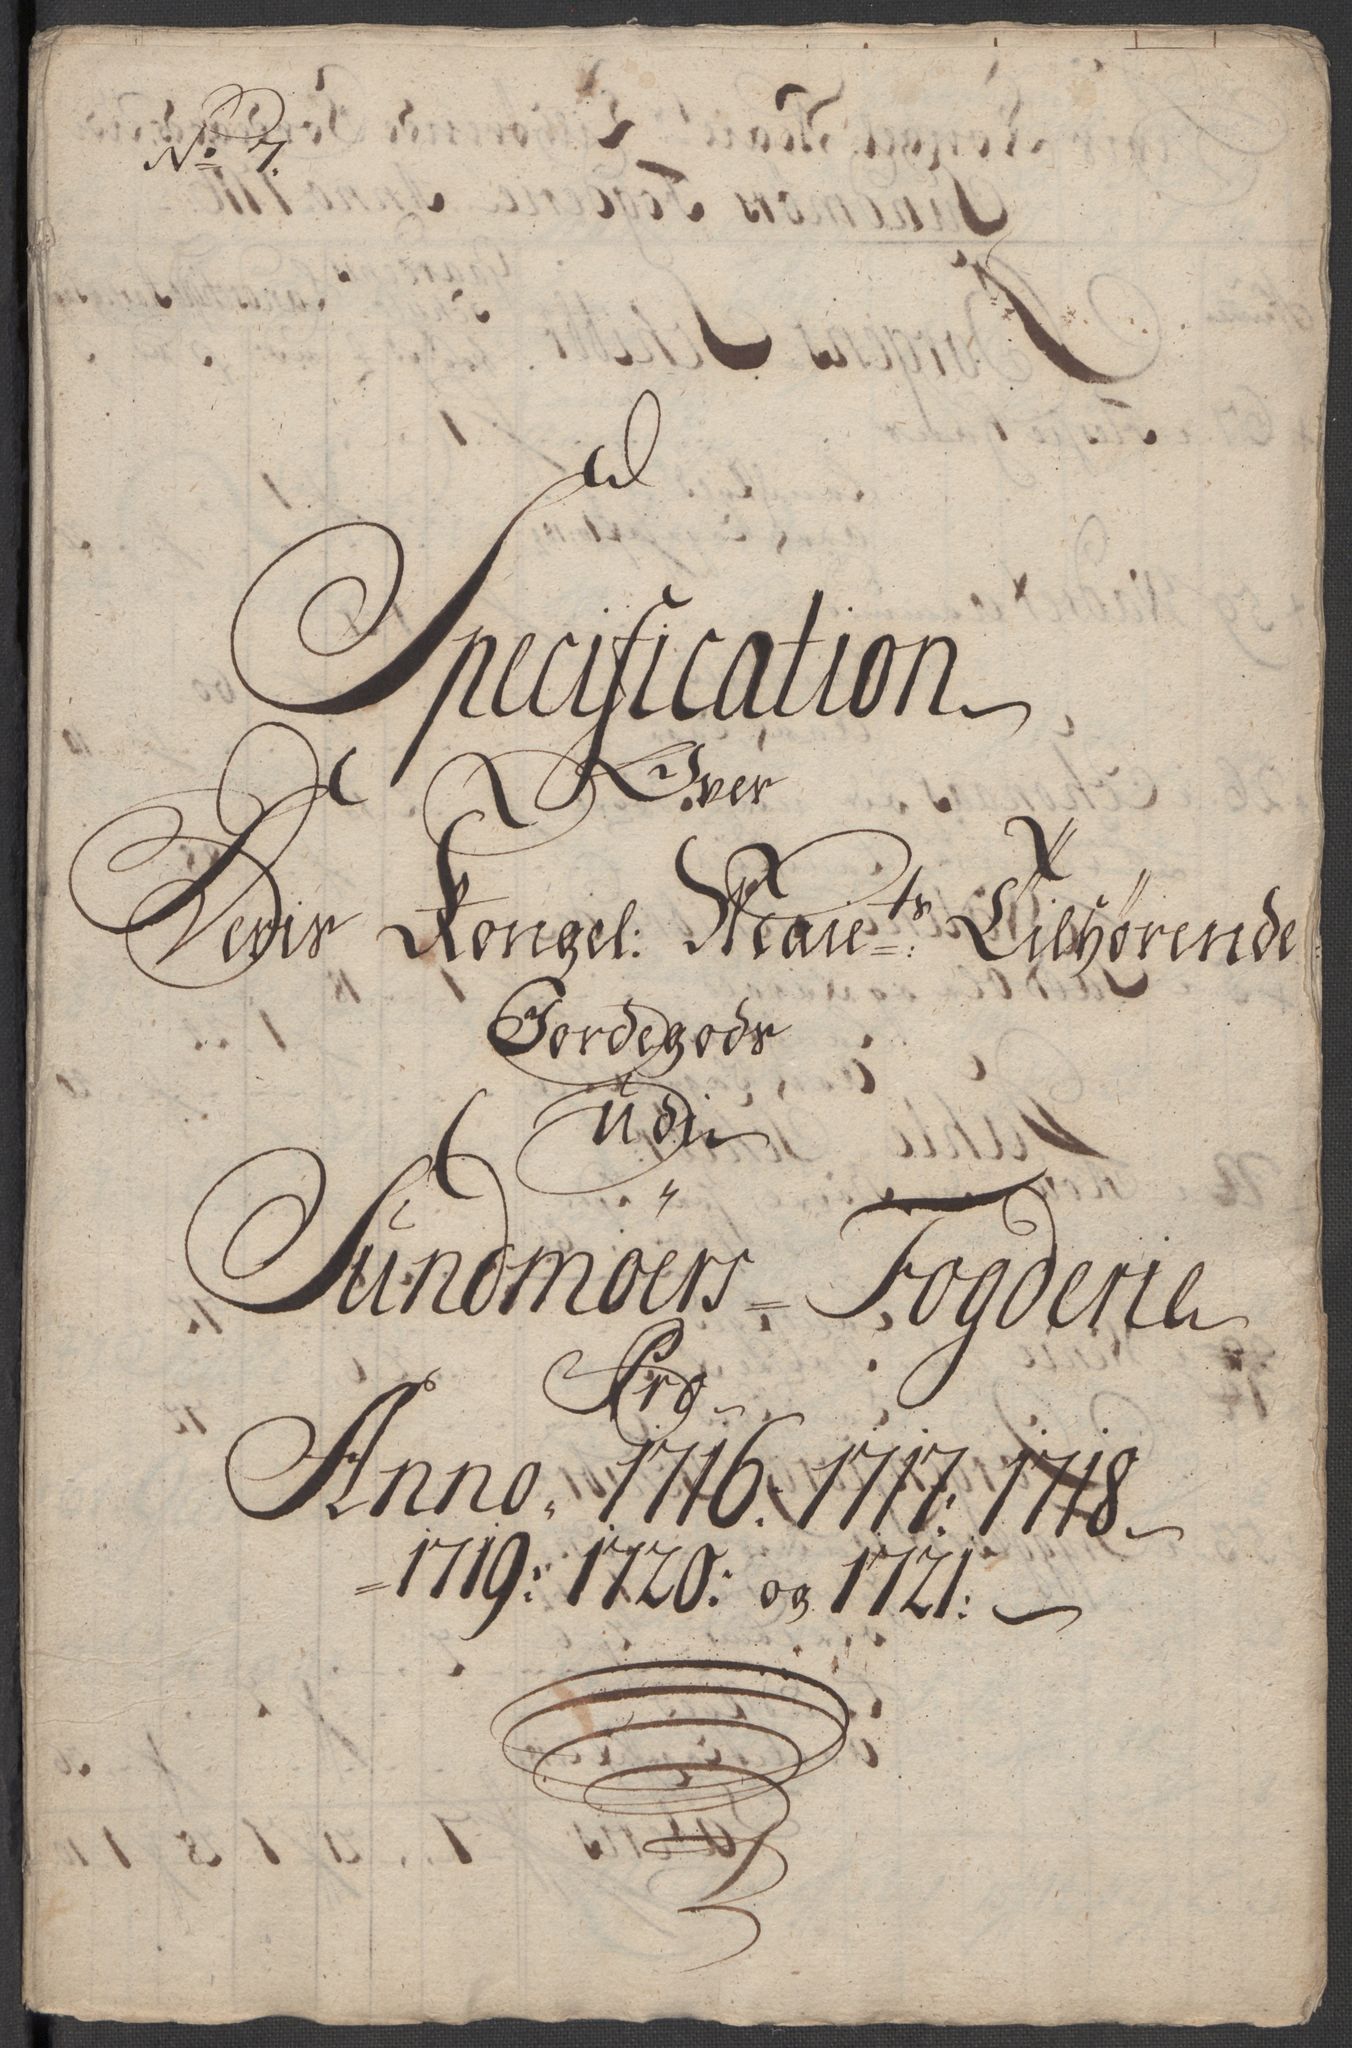 No 7.
Specification
Over
Deris Kongel: Maiets: Tilhørende
Jordegods
Udi
Sundmöers Fogderie
Pro
Anno. 1716. 1717: 1718
1719: 1720: og 1721: